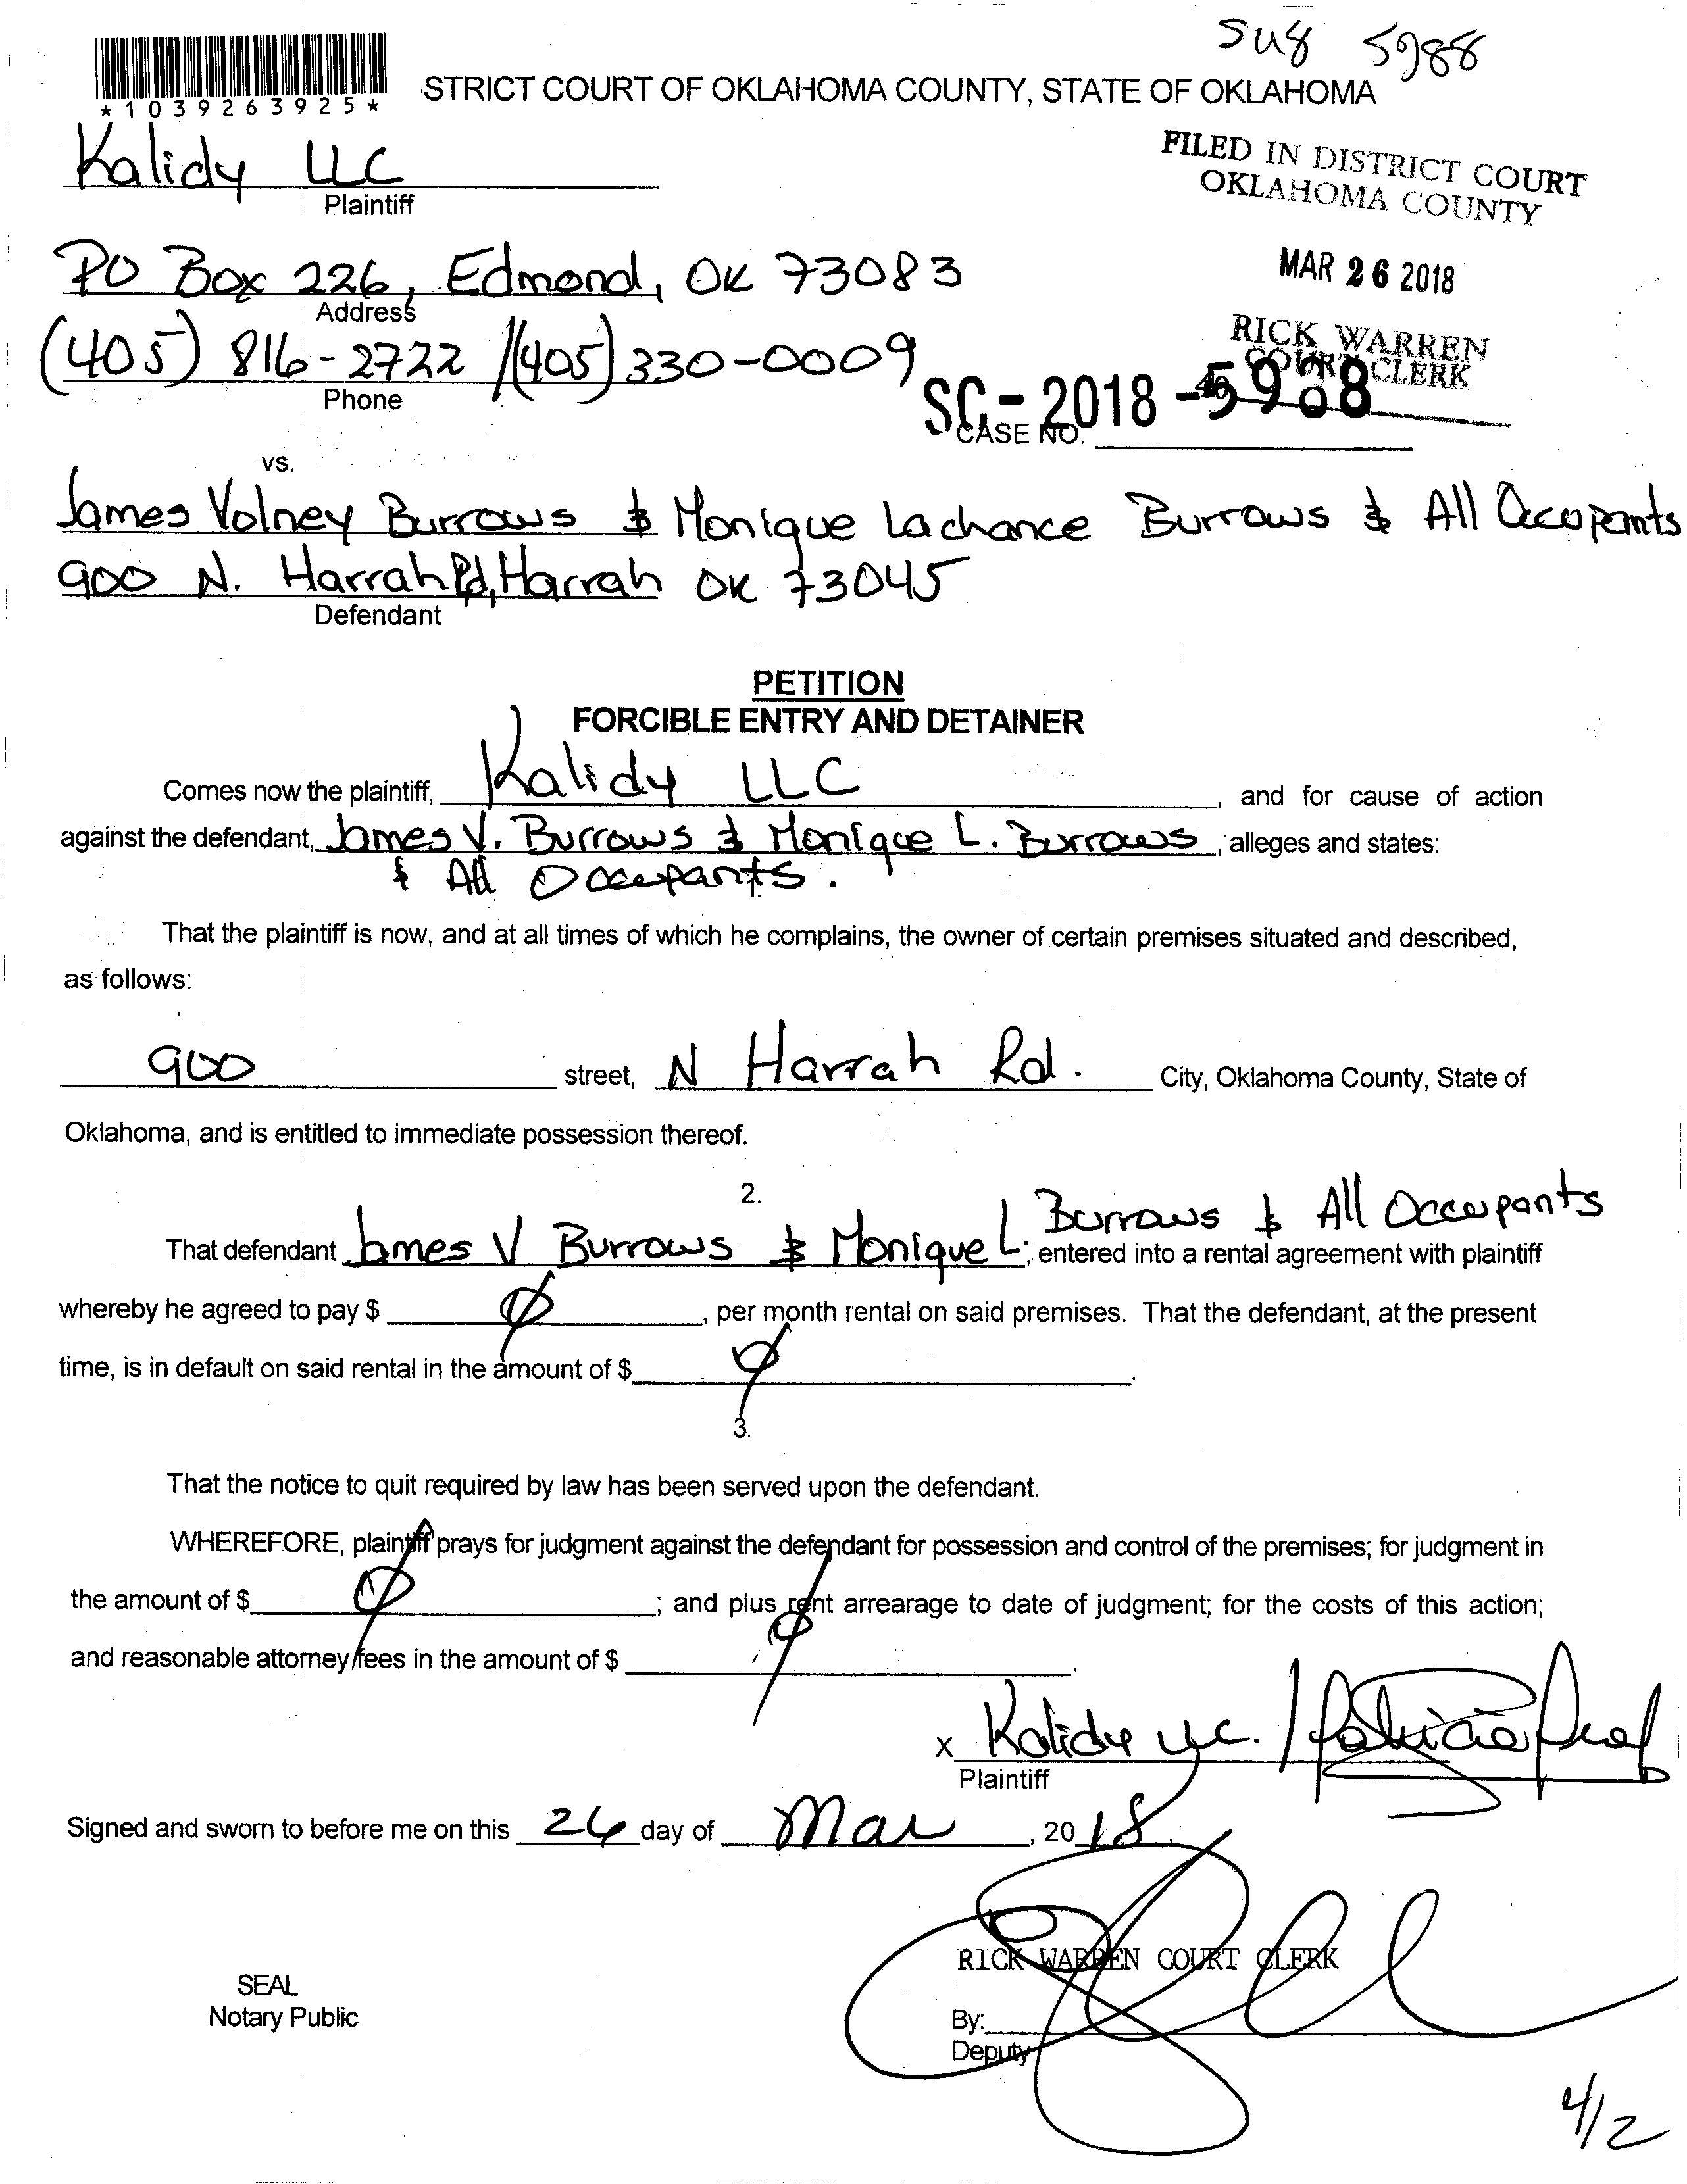 5988
*1039263925*
STRICT COURT OF OKLAHOMA COUNTY, STATE OF OKLAHOMA
Kalidy LLC
Plaintiff
FILED IN DISTRICT COURT
OKLAHOMA COUNTY
MAR 26 2018
RICK WARREN
COURT CLERK
PO Box 226, Edmond, OK 73083
Address
(405) 816-2722 /(405) 330-0009
Phone
SC-2018-5988
CASE NO.
vs.
James Volney Burrows & Monique Lachance Burrows & All Occupants
900 N. Harrah Rd, Harrah OK 73045
Defendant
PETITION
FORCIBLE ENTRY AND DETAINER
Comes now the plaintiff, Kalidy LLC, and for cause of action
against the defendant, James V. Burrows & Monique L. Burrows, alleges and states:
& All Occupants.
That the plaintiff is now, and at all times of which he complains, the owner of certain premises situated and described,
as follows:
900 street, N Harrah Rd. City, Oklahoma County, State of
Oklahoma, and is entitled to immediate possession thereof.
2.
That defendant James V Burrows & Monique L. Burrows & All Occupants, entered into a rental agreement with plaintiff
whereby he agreed to pay $ Ø, per month rental on said premises. That the defendant, at the present
time, is in default on said rental in the amount of $ Ø.
3.
That the notice to quit required by law has been served upon the defendant.
WHEREFORE, plaintiff prays for judgment against the defendant for possession and control of the premises; for judgment in
the amount of $ Ø; and plus rent arrearage to date of judgment; for the costs of this action;
and reasonable attorney fees in the amount of $ Ø.
X Kalidy LLC. /
Plaintiff
Signed and sworn to before me on this 26 day of Mar, 2018.
RICK WARREN COURT CLERK
SEAL
Notary Public
By:
Deputy
4/2